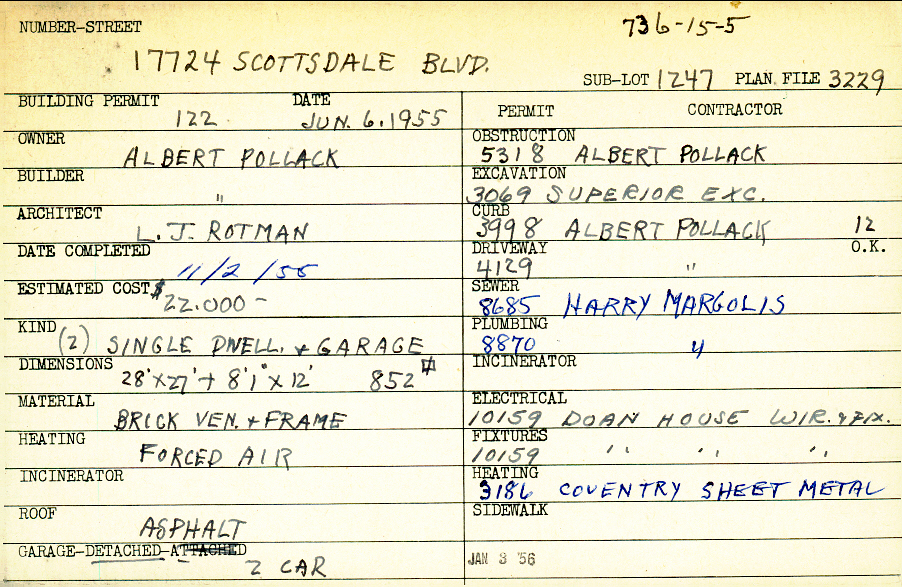 NUMBER-STREET 736-15-5
17724 SCOTTSDALE BLVD.
SUB-LOT 1247 PLAN FILE 3229
BUILDING PERMIT DATE
122 JUN. 6.1955
OWNER
ALBERT POLLACK
BUILDER
"
ARCHITECT
L.J. ROTMAN
DATE COMPLETED
11/2/55
ESTIMATED COST $
22.000 -
KIND
(2) SINGLE DWELL. + GARAGE
DIMENSIONS
28'x27' + 8'1" x 12' 852 #
MATERIAL
BRICK VEN. + FRAME
HEATING
FORCED AIR
INCINERATOR
ROOF
ASPHALT
GARAGE-DETACHED-ATTACHED
2 CAR
PERMIT CONTRACTOR
OBSTRUCTION
5318 ALBERT POLLACK
EXCAVATION
3069 SUPERIOR EXC.
CURB
3998 ALBERT POLLACK 12
DRIVEWAY O.K.
4129 "
SEWER
8685 HARRY MARGOLIS
PLUMBING
8870 "
INCINERATOR
ELECTRICAL
10159 DOAN HOUSE WIR. & FIX.
FIXTURES
10159 " " "
HEATING
3186 COVENTRY SHEET METAL
SIDEWALK
JAN 3 '56